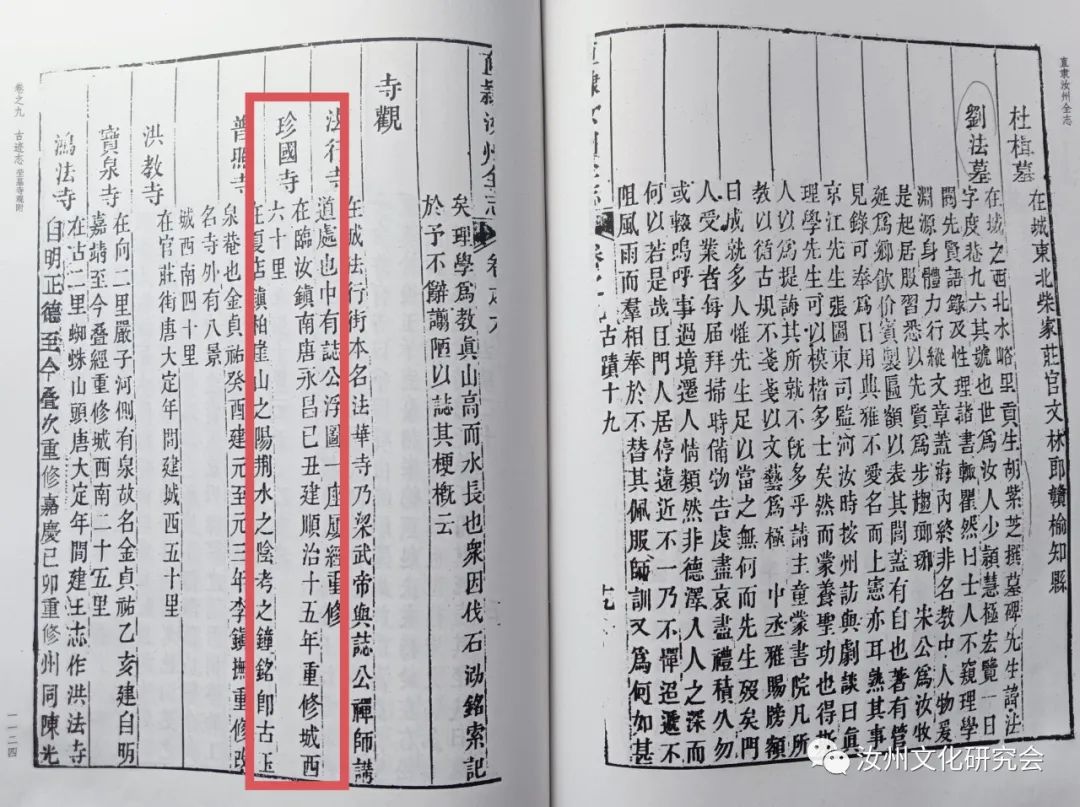 直隶汝州全志
杜楫墓
在城東北柴家莊官文林郎贛榆知縣
劉法墓
在城之西北水峪里貢生胡紫芝撰墓碑先生諱法
字度菴九六其號也世爲汝人少穎慧極宏覽一日
閱先賢語錄及性理諸書輒瞿然曰士人不窺理學
淵源身體力行縱文章蓋海內終非名教中人物爰
是起居服習悉以先賢爲步趨瑯琊 宋公爲汝牧
延爲鄉飲价賓製匾額以表其閭蓋有自也著有管
見錄可奉爲日用典雅不愛名而上憲亦耳熟其事
京江先生張圖東司監河汝時按州訪與劇談曰眞
理學先生可以模楷多士矣然而業養聖功也得斯
人以爲提誨其所就不旣多乎請主童蒙書院凡所
教以循古規不戔戔以文藝爲極 中丞雅賜牓額
曰成就多人惟先生足以當之無何而先生殁矣門
人受業者每屆拜掃時備物告虔盡哀盡禮積久勿
或輟嗚呼事過境遷人情類然非德澤入人之深而
何以若是哉且門人居停遠近不一乃不憚迢遞不
阻風雨而羣相奉於不替其佩服師訓又爲何如甚
古蹟十九
直隸汝州全志
矣理學爲教眞山高而水長也衆因伐石泐銘索記
於予不辭謭陋以誌其梗槪云
寺觀
法行寺
在城法行街本名法華寺乃梁武帝與誌公禪師講
道處也中有誌公浮圖一座屢經重修
珍國寺
在臨汝鎮南唐永昌己丑建順治十五年重修城西
六十里
普照寺
在夏店鎮柏崖山之陽荆水之陰考之鐘銘卽古玉
泉菴也金貞祐癸酉建元至元三年李鎮撫重修改
名寺外有八景
城西南四十里
洪教寺
在官莊街唐大定年間建城西五十里
寶泉寺
在向二里嚴子河側有泉故名金貞祐乙亥建自明
嘉靖至今叠經重修城西南二十五里
鴻法寺
在古二里蜘蛛山頭唐大定年間建王志作洪法寺
自明正德至今叠次重修嘉慶己卯重修州同陳光
卷之九 古迹志 茔墓寺观附
一一二四
汝州文化研究会